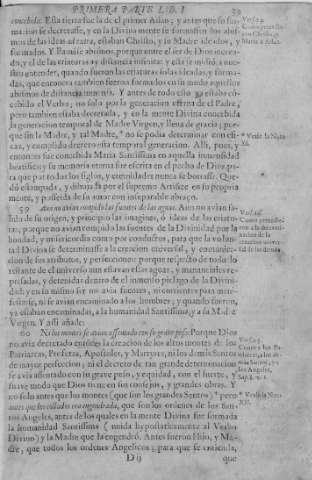 PRIMERA PARTE LIB. I
concebida. Esta tierra fue la de el primer Adan; y antes que
se decretasse, y en la Divina mente se formassen los abis-
mos de las ideas ad extra, estaban Christo, y su Madre ideados, y
formados. Y llamase abismos, porque entre el ser de Dios increa-
do, y el de las criaturas ay distancia infinita: y esta se midiò, a nues-
tro entender, quando fueron las criaturas solas ideadas, y forma-
das, que entonces tambien fueron formados en su modo aquellos
abismos de distancia inmensa. Y antes de todo esto ya estaba con-
cebido el Verbo, no solo por la generacion eterna de el Padre,
pero tambien estaba decretada, y en la mente Divina concebida
la generacion temporal de Madre Virgen, y llena de gracia; por-
que sin la Madre, y tal Madre, * no se podia determinar con efi-
caz, y cumplido decreto esta temporal generacion. Alli, pues, y
entonces fue concebida Maria Santissima en aquella inmensidad
beatifica; y su memoria eterna fue escrita en el pecho de Dios, pa-
ra que por todos los siglos, y eternidades nunca se borrasse. Que-
dò estampada, y dibujada por el supremo Artifice en su propria
mente, y posseida de su amor con inseparable abraço.
59 Aun no avian rompido las fuentes de las aguas. Aun no avian sa-
lido de su origen, y principio las imagines, ò ideas de las criatu-
ras; porque no avian rompido las fuentes de la Divinidad por la
bondad, y misericordia como por conductos, para que la volun-
tad Divina se determinasse a la creacion universal, y comunica-
cion de sus atributos, y perfecciones: porque respecto de todo lo
restante de el universo aun estavan estas aguas, y manantiales re-
presadas, y detenidas dentro de el inmenso pielago de la Divini-
dad; y en su mismo ser no avia fuentes, ni corrientes para mani-
festarse, ni se avian encaminado a los hombres; y quando fueron,
ya estaban encaminadas, a la humanidad Santissima, y a su Madre
Virgen. Y assi añade:
60 Ni los montes se avian assentado con su grave peso. Porque Dios
no avia decretado entonces la creacion de los altos montes de los
Patriarcas, Profetas, Apostoles, y Martyres, ni los demàs Santos
de mayor perfeccion; ni el decreto de tan grande determinacion
se avia assentado con su grave peso, y equidad, con el fuerte, y
suave modo que Dios tiene en sus consejos, y grandes obras. Y
no solo antes que los montes (que son los grandes Santos) * pero
antes que los collados era engendrada, que son los ordenes de los San-
tos Angeles, antes de los quales en la mente Divina fue formada
la humanidad Santissima (unida hypostaticamente al Verbo
Divino) y la Madre que la engendrò. Antes fueron Hijo, y Ma-
dre, que todos los ordenes Angelicos;
que
* Vease la Nota
XI.
* Vease la Nota
XII.